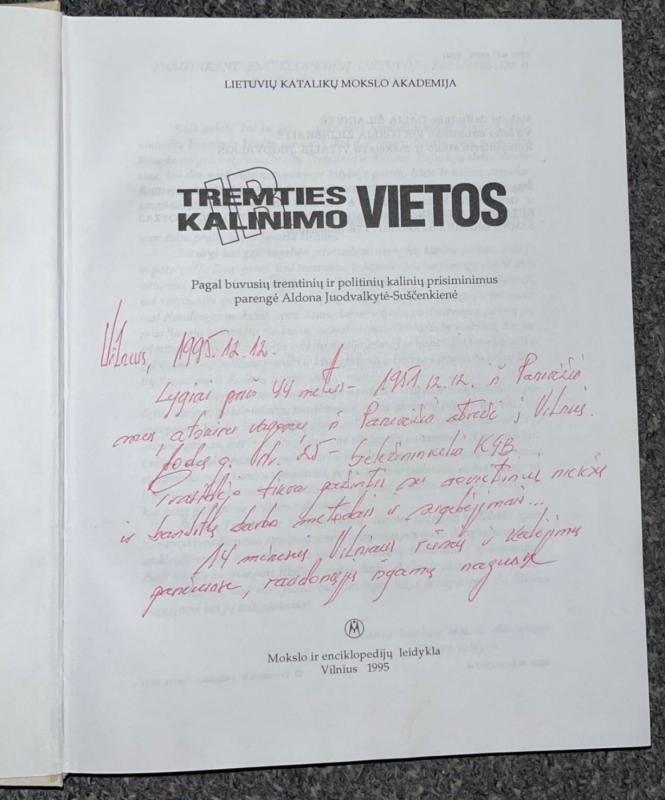 LIETUVIŲ KATALIKŲ MOKSLO AKADEMIJA
TREMTIES
IR
KALINIMO VIETOS
Pagal buvusių tremtinių ir politinių kalinių prisiminimus
parengė Aldona Juodvalkytė-Suščenkienė
Vilnius, 1995.12.12.
Lygiai prieš 44 metus - 1951.12.12. iš Panevėžio
iš Panevėžio į Vilnių.
g. Nr. 25 - Geležinkelio KGB.
Prasidėjo tikra pažintis su sovietinių
ir banditų darbo metodais ir
14 mėnesių Vilniaus rūsių ir kalėjimų
raudonųjų naguose
Mokslo ir enciklopedijų leidykla
Vilnius 1995